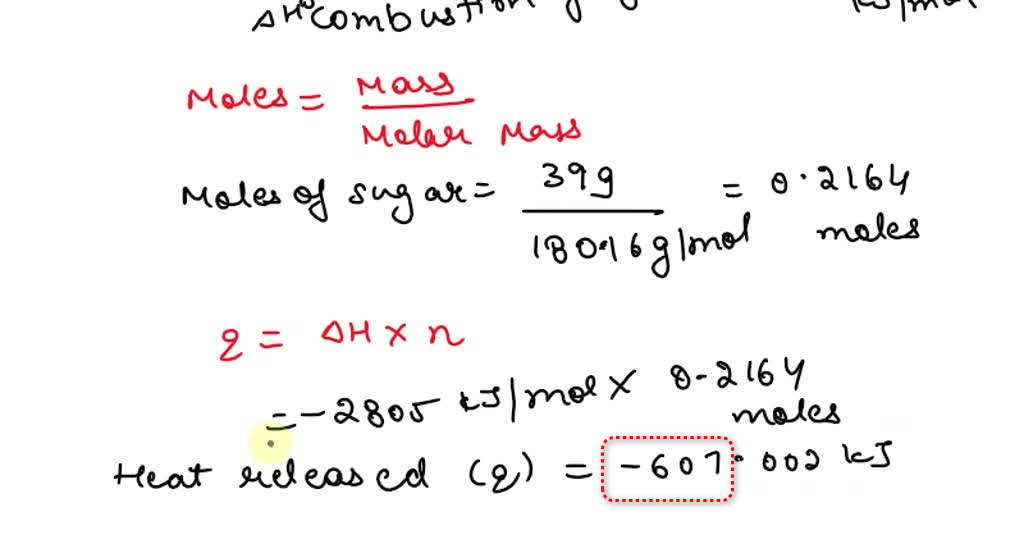 ΔH° combustion
Moles = Mass
Molar Mass
Moles of sugar = 39g = 0.2164
180.16 g/mol moles
q = ΔH × n
= -2805 kJ/mol × 0.2164
moles
Heat released (q) = -607.002 kJ